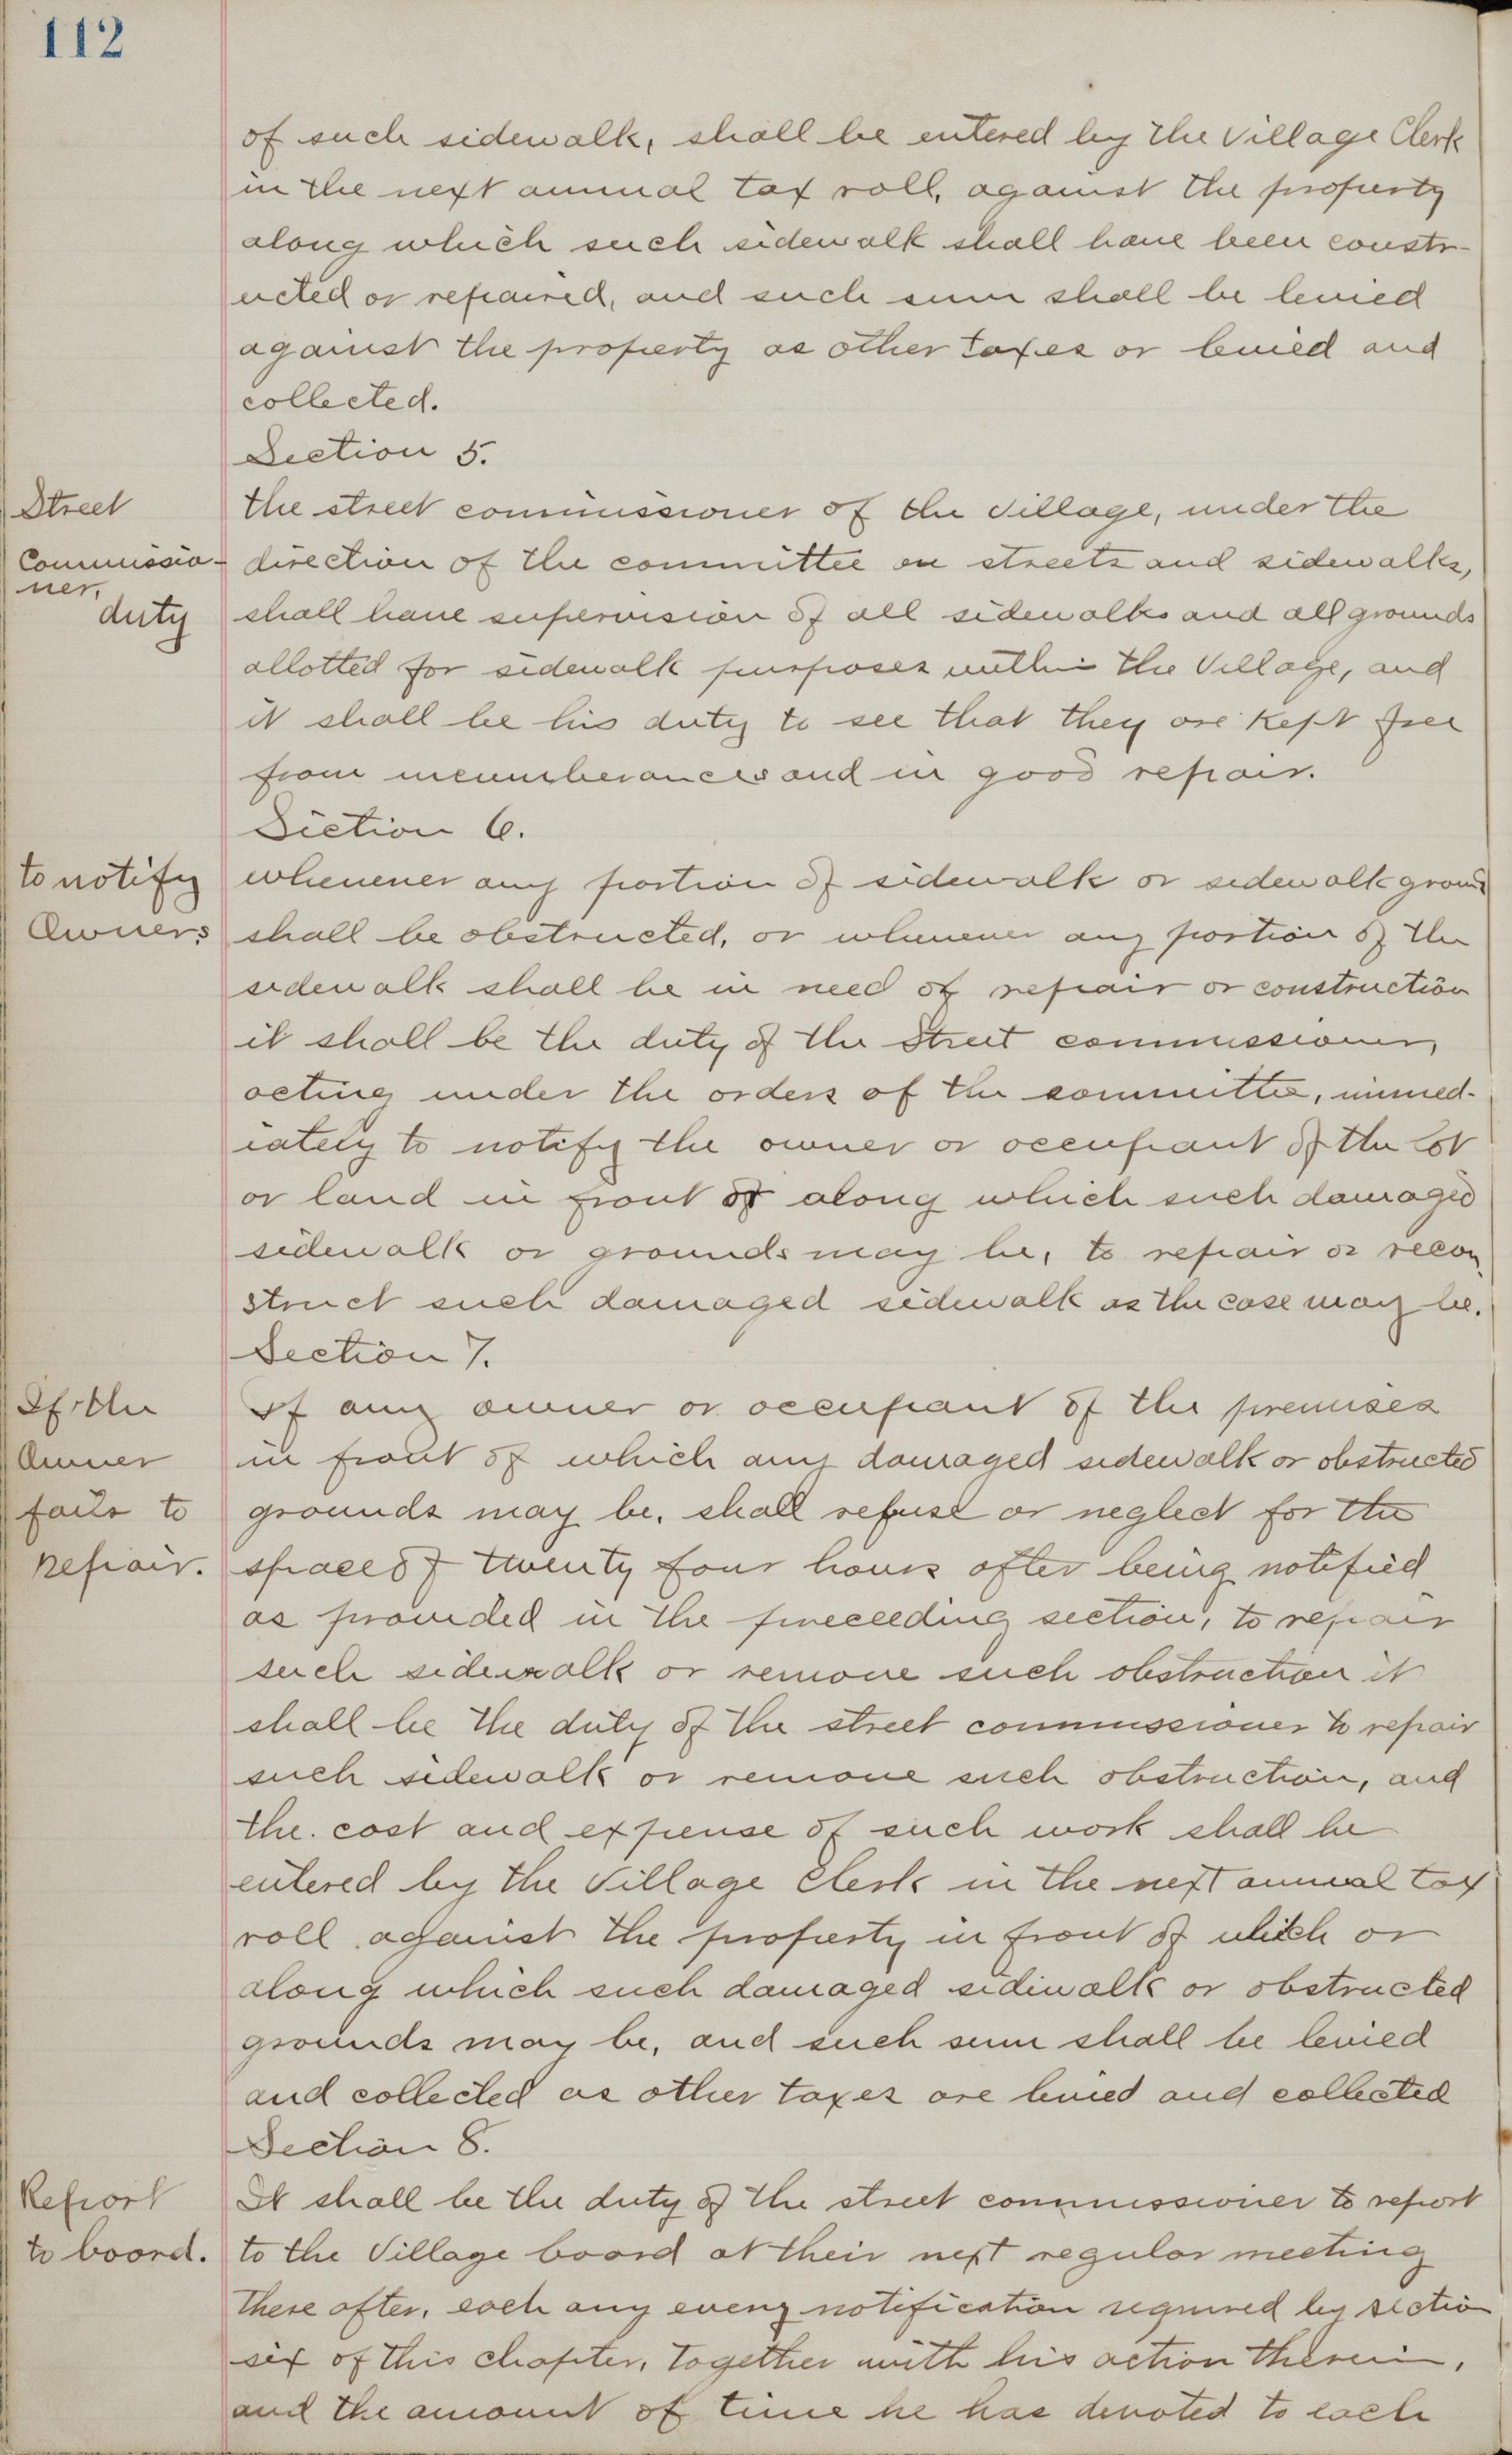 112
of such sidewalk, shall be entered by the village Clerk
in the next annual tax roll, against the property
along which such sidewalk shall have been constr-
ucted or repaired, and such sum shall be levied
against the property as other taxes or levied and
collected.
Section 5.
Street
Commissio-
ner,
duty
the street commissioner of the village, under the
direction of the committee on streets and sidewalks,
shall have supervision of all sidewalks and all grounds
allotted for sidewalk purposes within the Village, and
it shall be his duty to see that they are kept free
from incumberances and in good repair.
Section 6.
to notify
Owners
whenever any portion of sidewalk or sidewalk ground
shall be obstructed, or whenever any portion of the
sidewalk shall be in need of repair or construction
it shall be the duty of the Street commissioner,
acting under the orders of the committee, immed-
iately to notify the owner or occupant of the lot
or land in front of along which such damaged
sidewalk or grounds may be, to repair or recon
struct such damaged sidewalk as the case may be.
Section 7.
If the
Owner
fails to
repair.
If any owner or occupant of the premises
in front of which any damaged sidewalk or obstructed
grounds may be, shall refuse or neglect for the
space of twenty four hours after being notified
as provided in the preceeding section, to repair
such sidewalk or remove such obstruction it
shall be the duty of the street commissioner to repair
such sidewalk or remove such obstruction, and
the cost and expense of such work shall be
entered by the Village Clerk in the next annual tax
roll against the property in front of which or
along which such damaged sidiwalk or obstructed
grounds may be, and such sum shall be levied
and collected as other taxes are levied and collected
Section 8.
Report
to board.
It shall be the duty of the street commissioner to report
to the Village board at their next regular meeting
there after, each any every notification required by sectio
six of this chapter, together with his action therein,
and the amount of time he has devoted to each